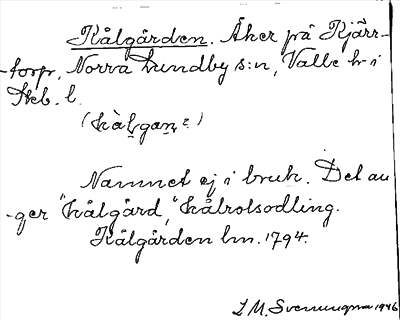 Kålgården. Åker på Kjärr-
torp, Norra Lundby s:n, Valle h. i
Skb. l.
Namnet ej i bruk. Det an-
ger "kålgård," kålrotsodling.
Kålgården lm. 1794.
L M. Svenungsson 1946